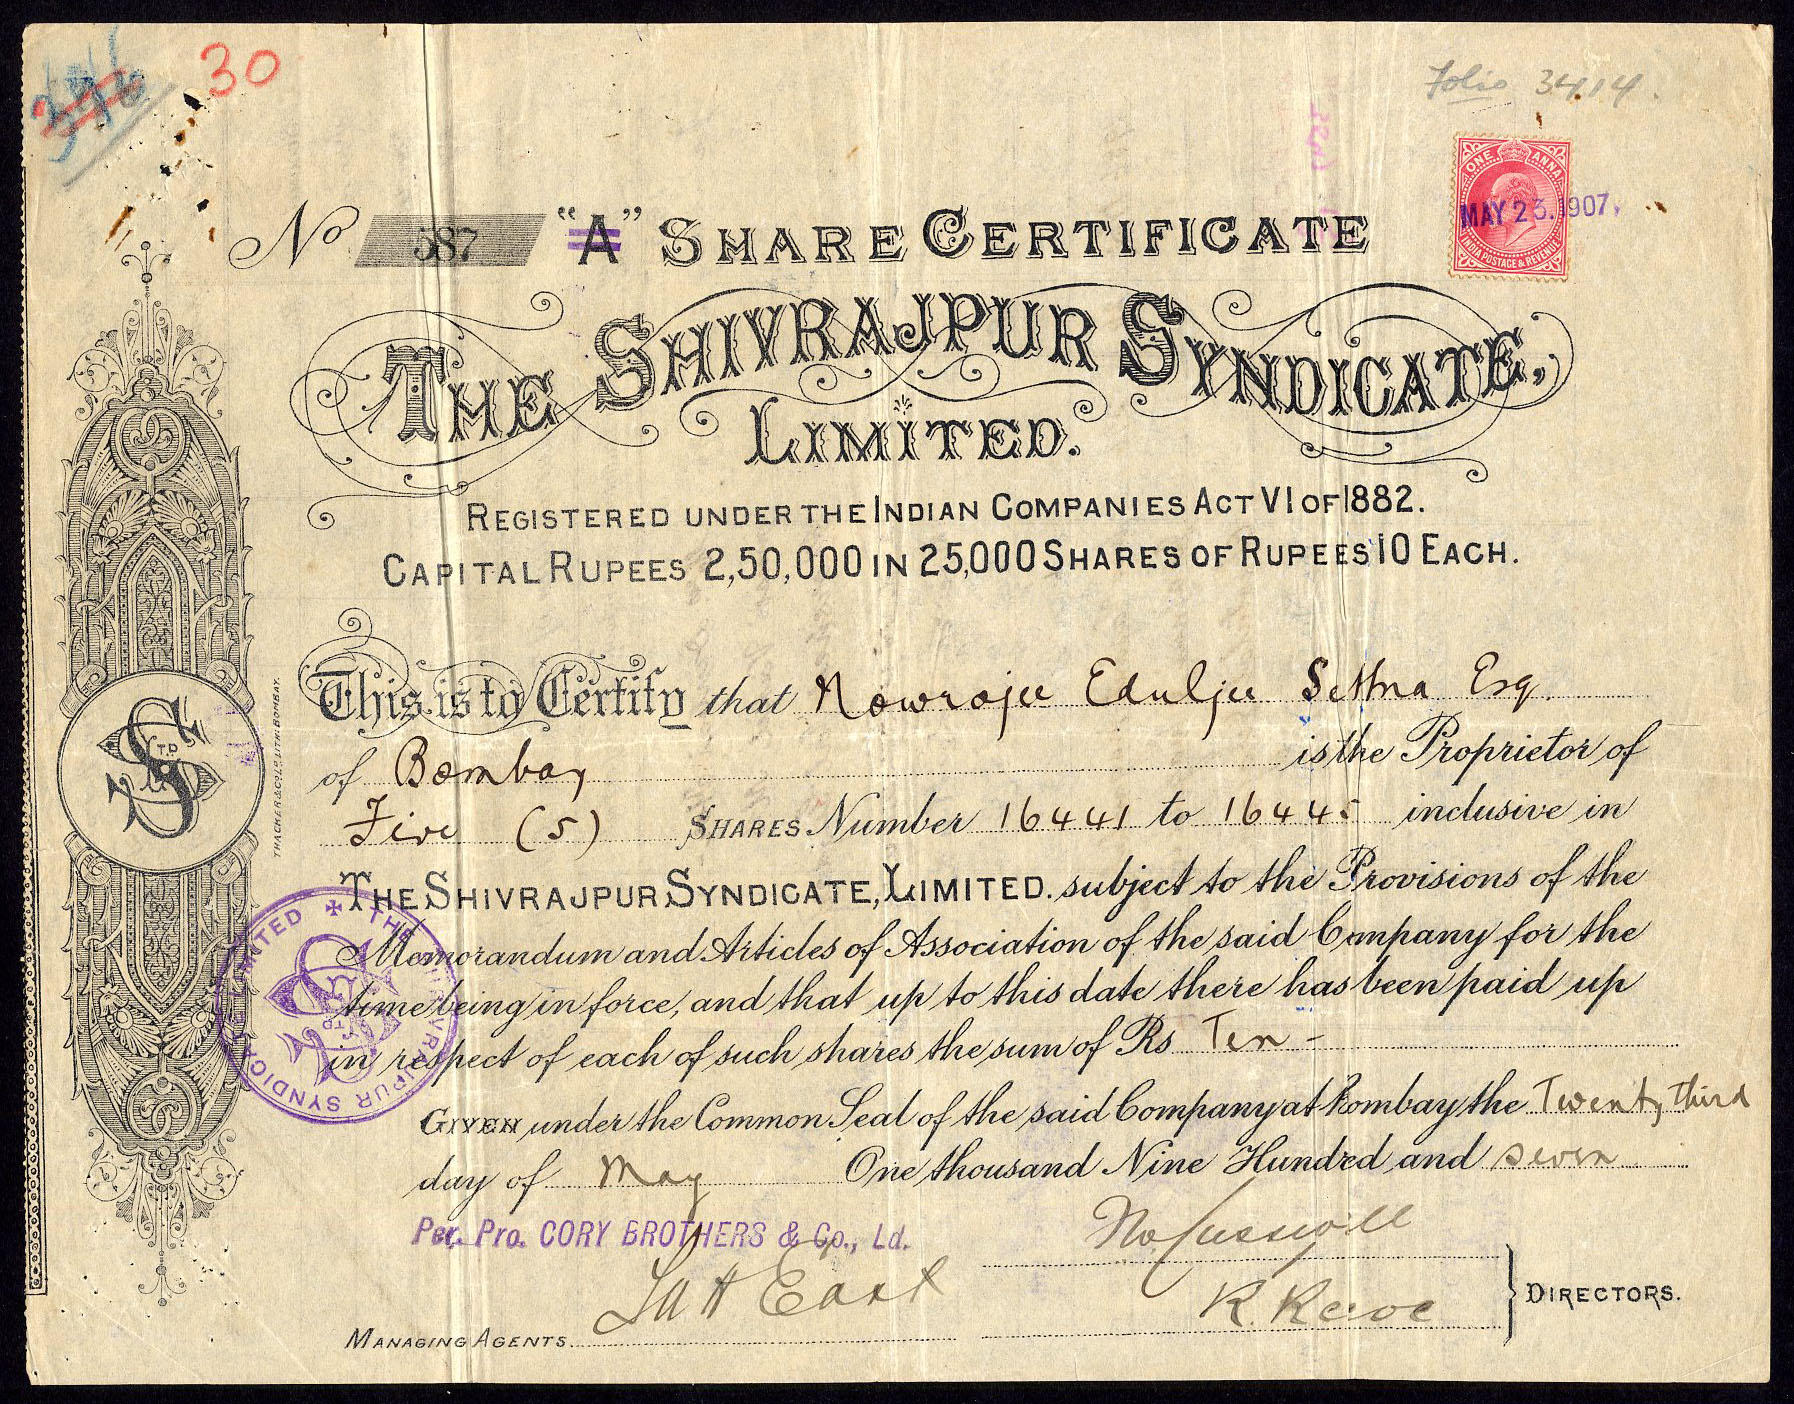 30
Folio 3414.
ONE ANNA
MAY 23. 1907.
INDIA POSTAGE & REVENUE
No 587 "A" SHARE CERTIFICATE
THE SHIVRAJPUR SYNDICATE,
LIMITED.
REGISTERED UNDER THE INDIAN COMPANIES ACT VI OF 1882.
CAPITAL RUPEES 2,50,000 IN 25,000 SHARES OF RUPEES 10 EACH.
This is to Certify that Nowrojee Eduljee Sethna Esq.
of Bombay is the Proprietor of
Five (5) SHARES Number 16441 to 16445 inclusive in
THE SHIVRAJPUR SYNDICATE, LIMITED. subject to the Provisions of the
Memorandum and Articles of Association of the said Company for the
time being in force, and that up to this date there has been paid up
in respect of each of such shares the sum of Rs Ten -
GIVEN under the Common Seal of the said Company at Bombay the Twenty third
day of May One thousand Nine Hundred and seven
Per. Pro. CORY BROTHERS & Co., Ld.
East
R. Reeve
DIRECTORS.
MANAGING AGENTS.
THE SHIVRAJPUR SYNDICATE LIMITED
THACKER & CO LD LITH BOMBAY.